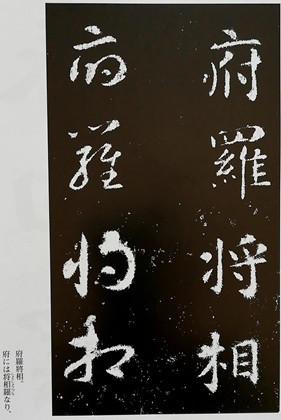 府羅将相
府羅将相
府羅將相。
府には将相羅なり、